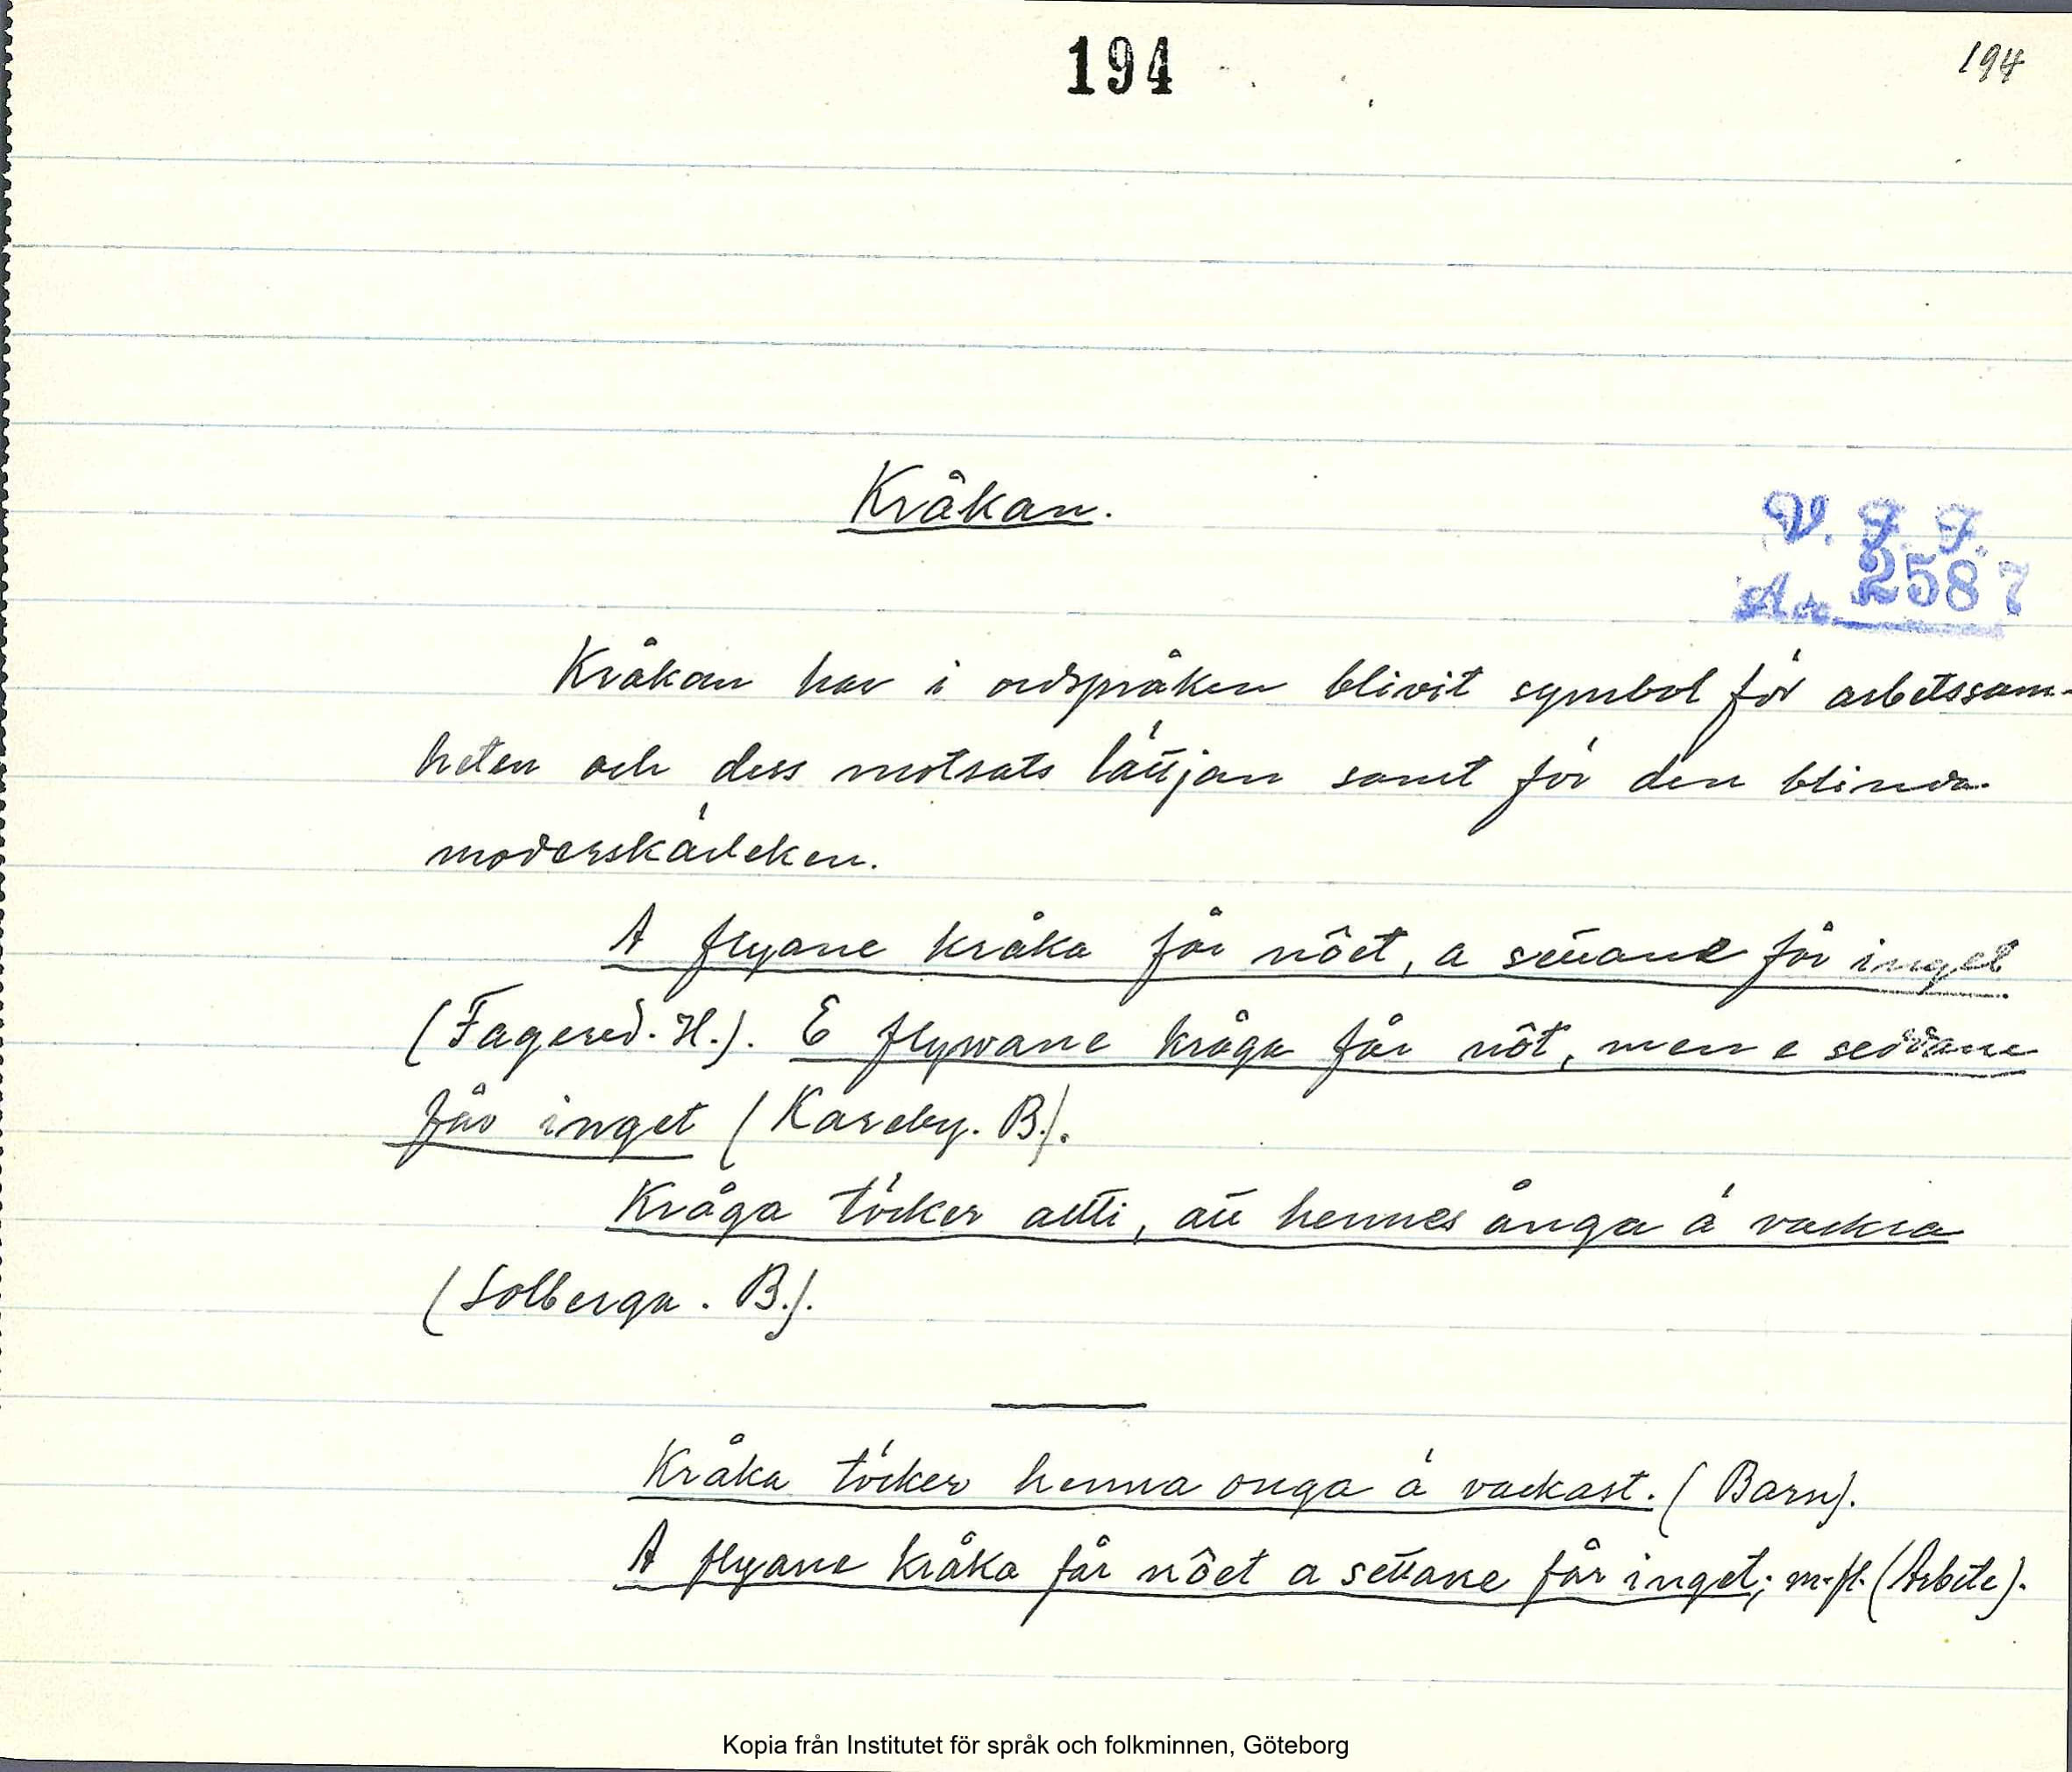 194
194
Kråkan.
V. F. F.
Acc. 2587
Kråkan har i ordspråken blivit symbol för arbetssam-
heten och dess motsats lättjan samt för den blinda
moderskärleken.
A flyane kråka får nôet, a settane får inget
(Fagered. H.). E flywane kråga får nôt, men e seddane
får inget (Kareby. B.).
Kråga töcker allti, att hennes ånga ä vackra
(Solberga. B.).
Kråka töcker henna onga ä vackast. (Barn).
A flyane kråka får nôet a settane får inget; m. fl. (Arbete).
Kopia från Institutet för språk och folkminnen, Göteborg